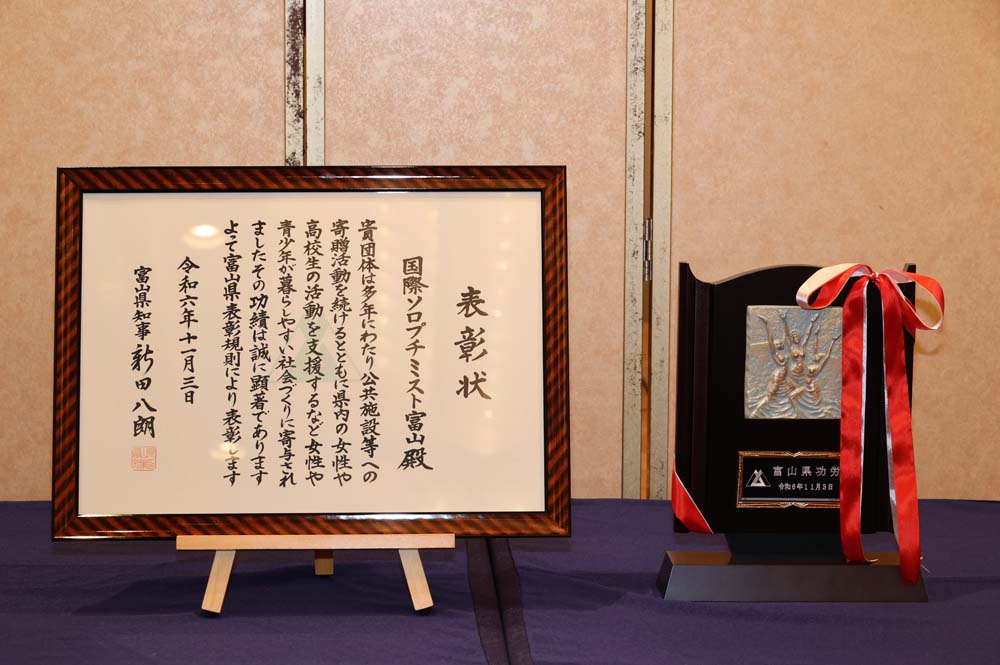 表彰状
国際ソロプチミスト富山殿
貴団体は多年にわたり公共施設等への
寄贈活動を続けるとともに県内の女性や
高校生の活動を支援するなど女性や
青少年が暮らしやすい社会づくりに寄与され
ましたその功績は誠に顕著であります
よって富山県表彰規則により表彰します
令和六年十一月三日
富山県知事 新田八朗
富山県功労
令和6年11月3日